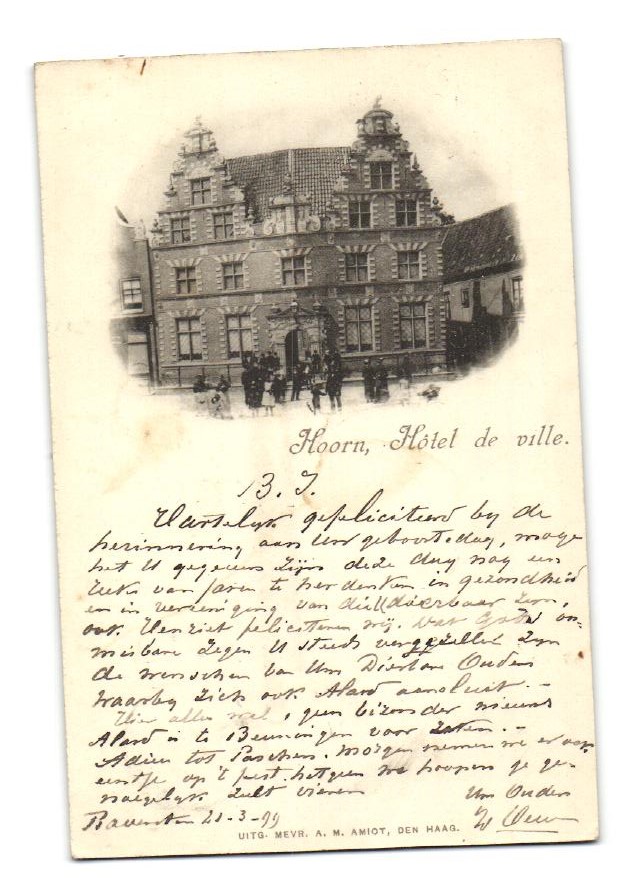 Hoorn, Hôtel de ville.
B. J.
Hartelijk gefeliciteerd by de
herinnering aan Uw geboortedag, moge
het U gegeven zijn deze dag nog een
reeks van jaren te herdenken in gezondheid
en in vereeniging van die U dierbaar zijn,
ook Henriet feliciteren wij. dat Gods on-
misbare zegen U steeds vergezelle zyn
de wenschen van Uw Dierbare Ouders
waarby zich ook Alard aansluit. -
Hier alles wel, geen bizonder nieuws
Alard is te Beuningen voor zaken. -
Adieu tot Paschen. Morgen nemen we er ook
eentje op 't feest. hetgeen we hoopen je ge-
noegelijk zult vieren
Uw Ouders
21-3-99
UITG. MEVR. A. M. AMIOT, DEN HAAG.